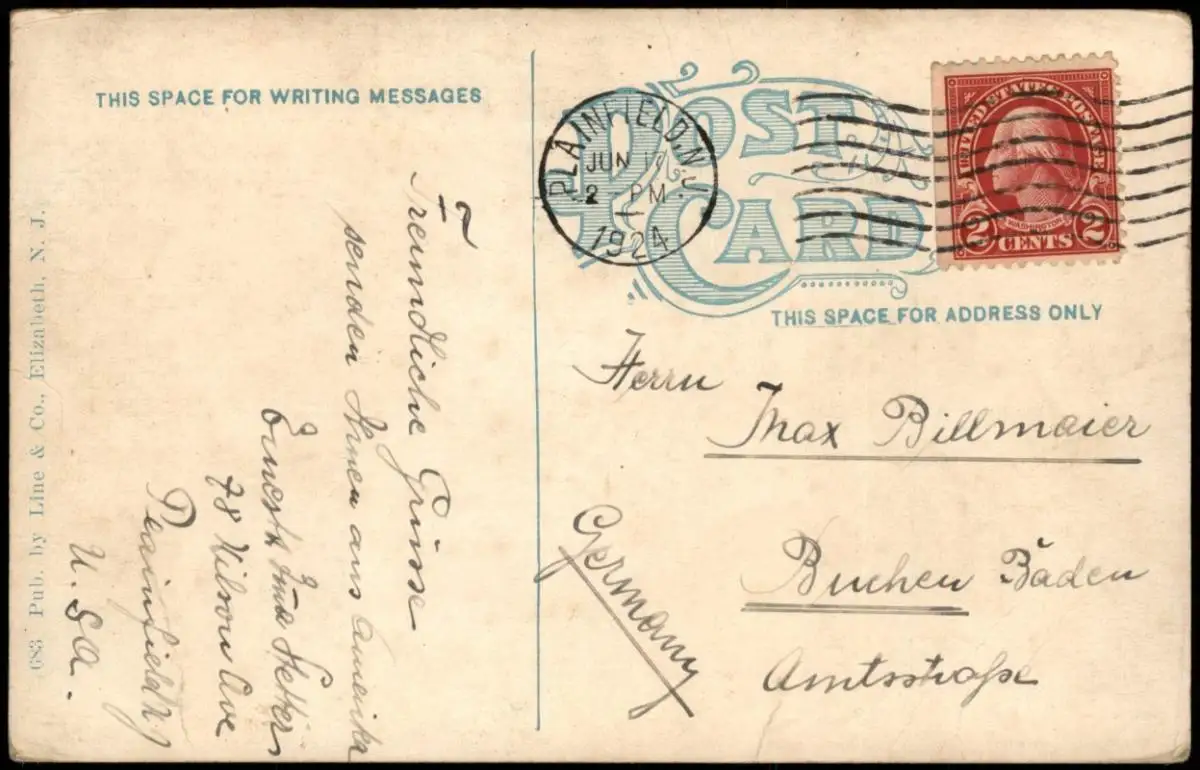 THIS SPACE FOR WRITING MESSAGES
POST CARD
PLAINFIELD, N.J.
JUN
2 PM
1924
UNITED STATES POSTAGE
WASHINGTON
2 CENTS 2
THIS SPACE FOR ADDRESS ONLY
Freundliche Grüsse
senden Ihnen aus Amerika
Ernest
78 Wilson Ave
Plainfield N J
U. S A.
Herrn
Max Billmaier
Buchen Baden
Amtsstraße
Germany
683 Pub. by Line & Co., Elizabeth, N. J.